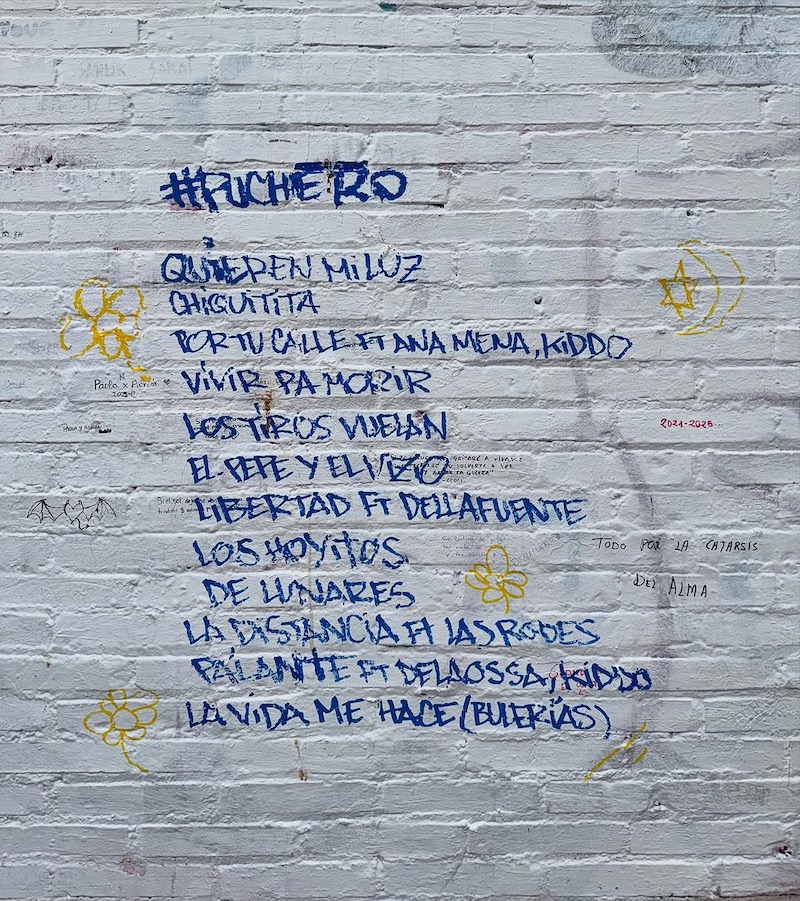 #PUCHERO
QUIEREN MI LUZ
CHIQUITITA
POR TU CALLE FT ANA MENA, KIDDO
VIVIR PA MORIR
LOS TIROS VUELAN
EL PEPE Y EL VIZIO
LIBERTAD FT DELLAFUENTE
LOS HOYITOS
DE LUNARES
LA DISTANCIA FT LAS RODES
PALANTE FT DELAOSSA, KIDDO
LA VIDA ME HACE (BULERÍAS)
Paula x
2021-2025
TODO POR LA CATARSIS
DEL ALMA